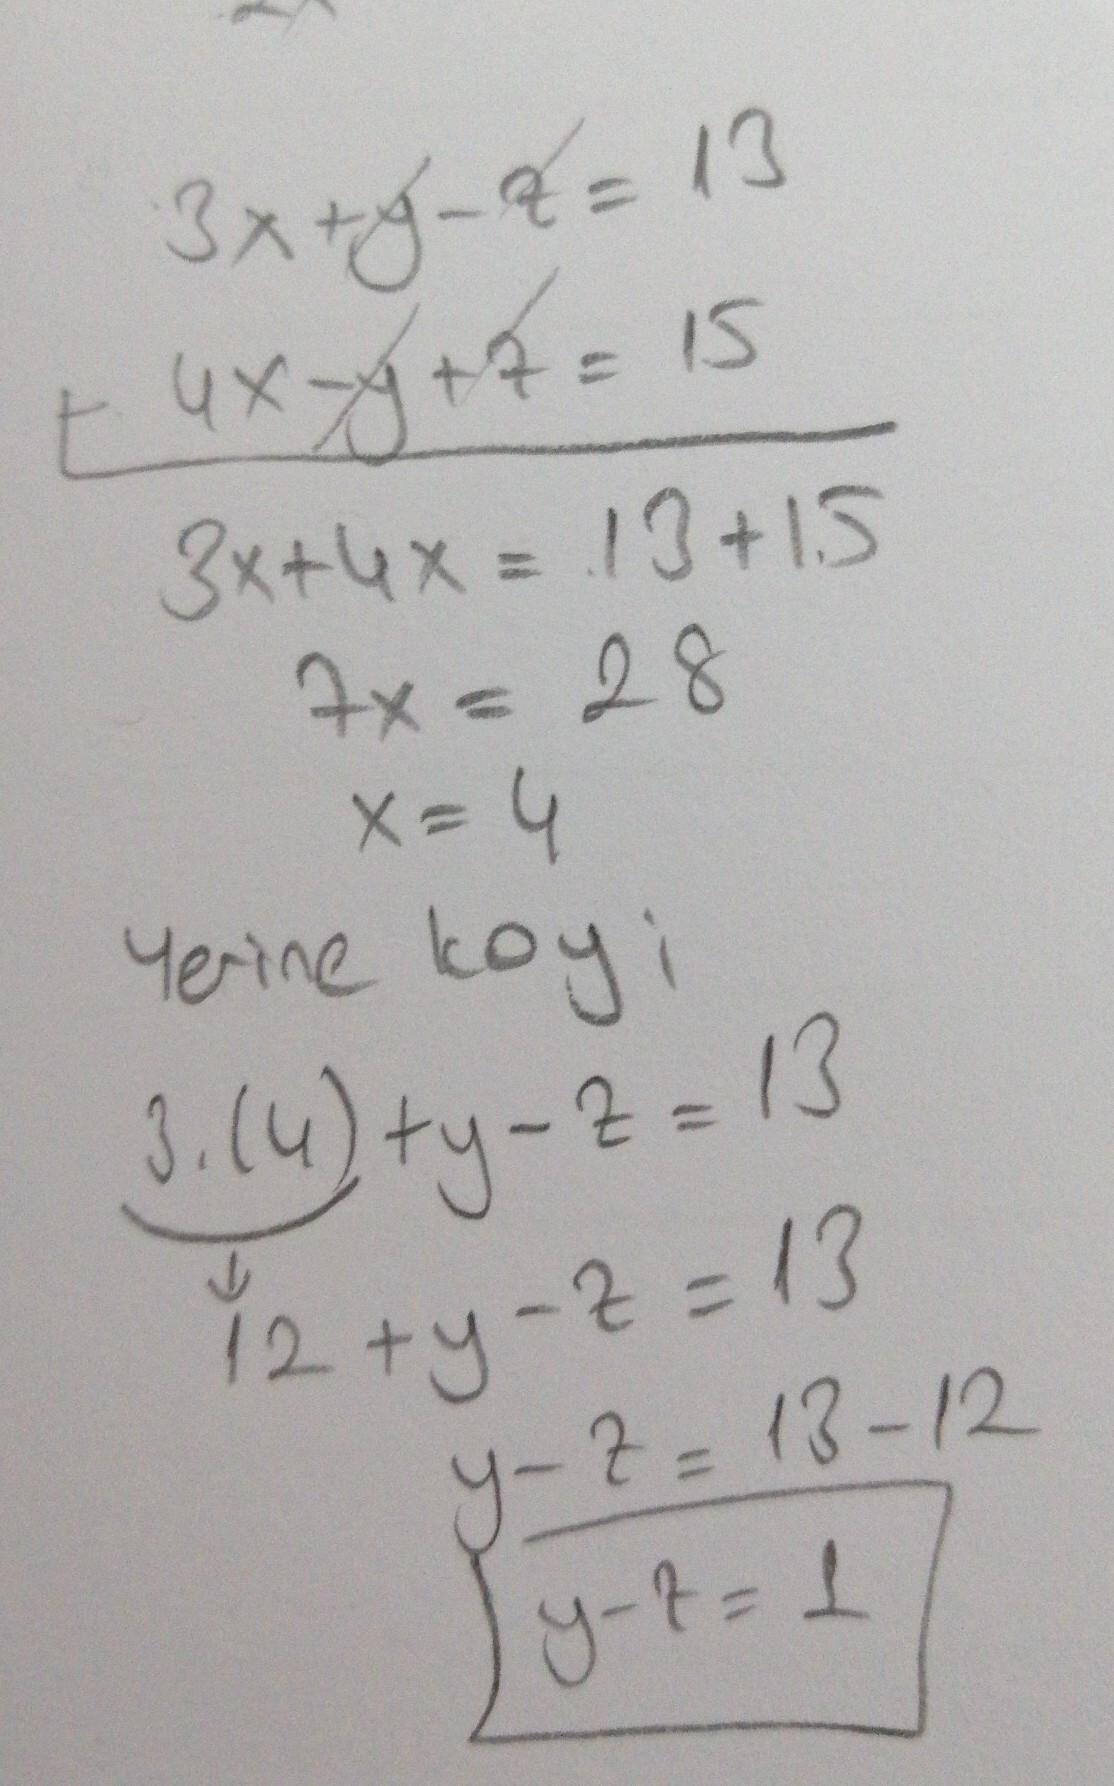 3x+y-z= 13
+ 4x-y+z= 15
3x+4x= 13+15
7x= 28
x= 4
Yerine koy;
3.(4)+y-z=13
↓
12+y-z=13
y-z=13-12
y-z= 1